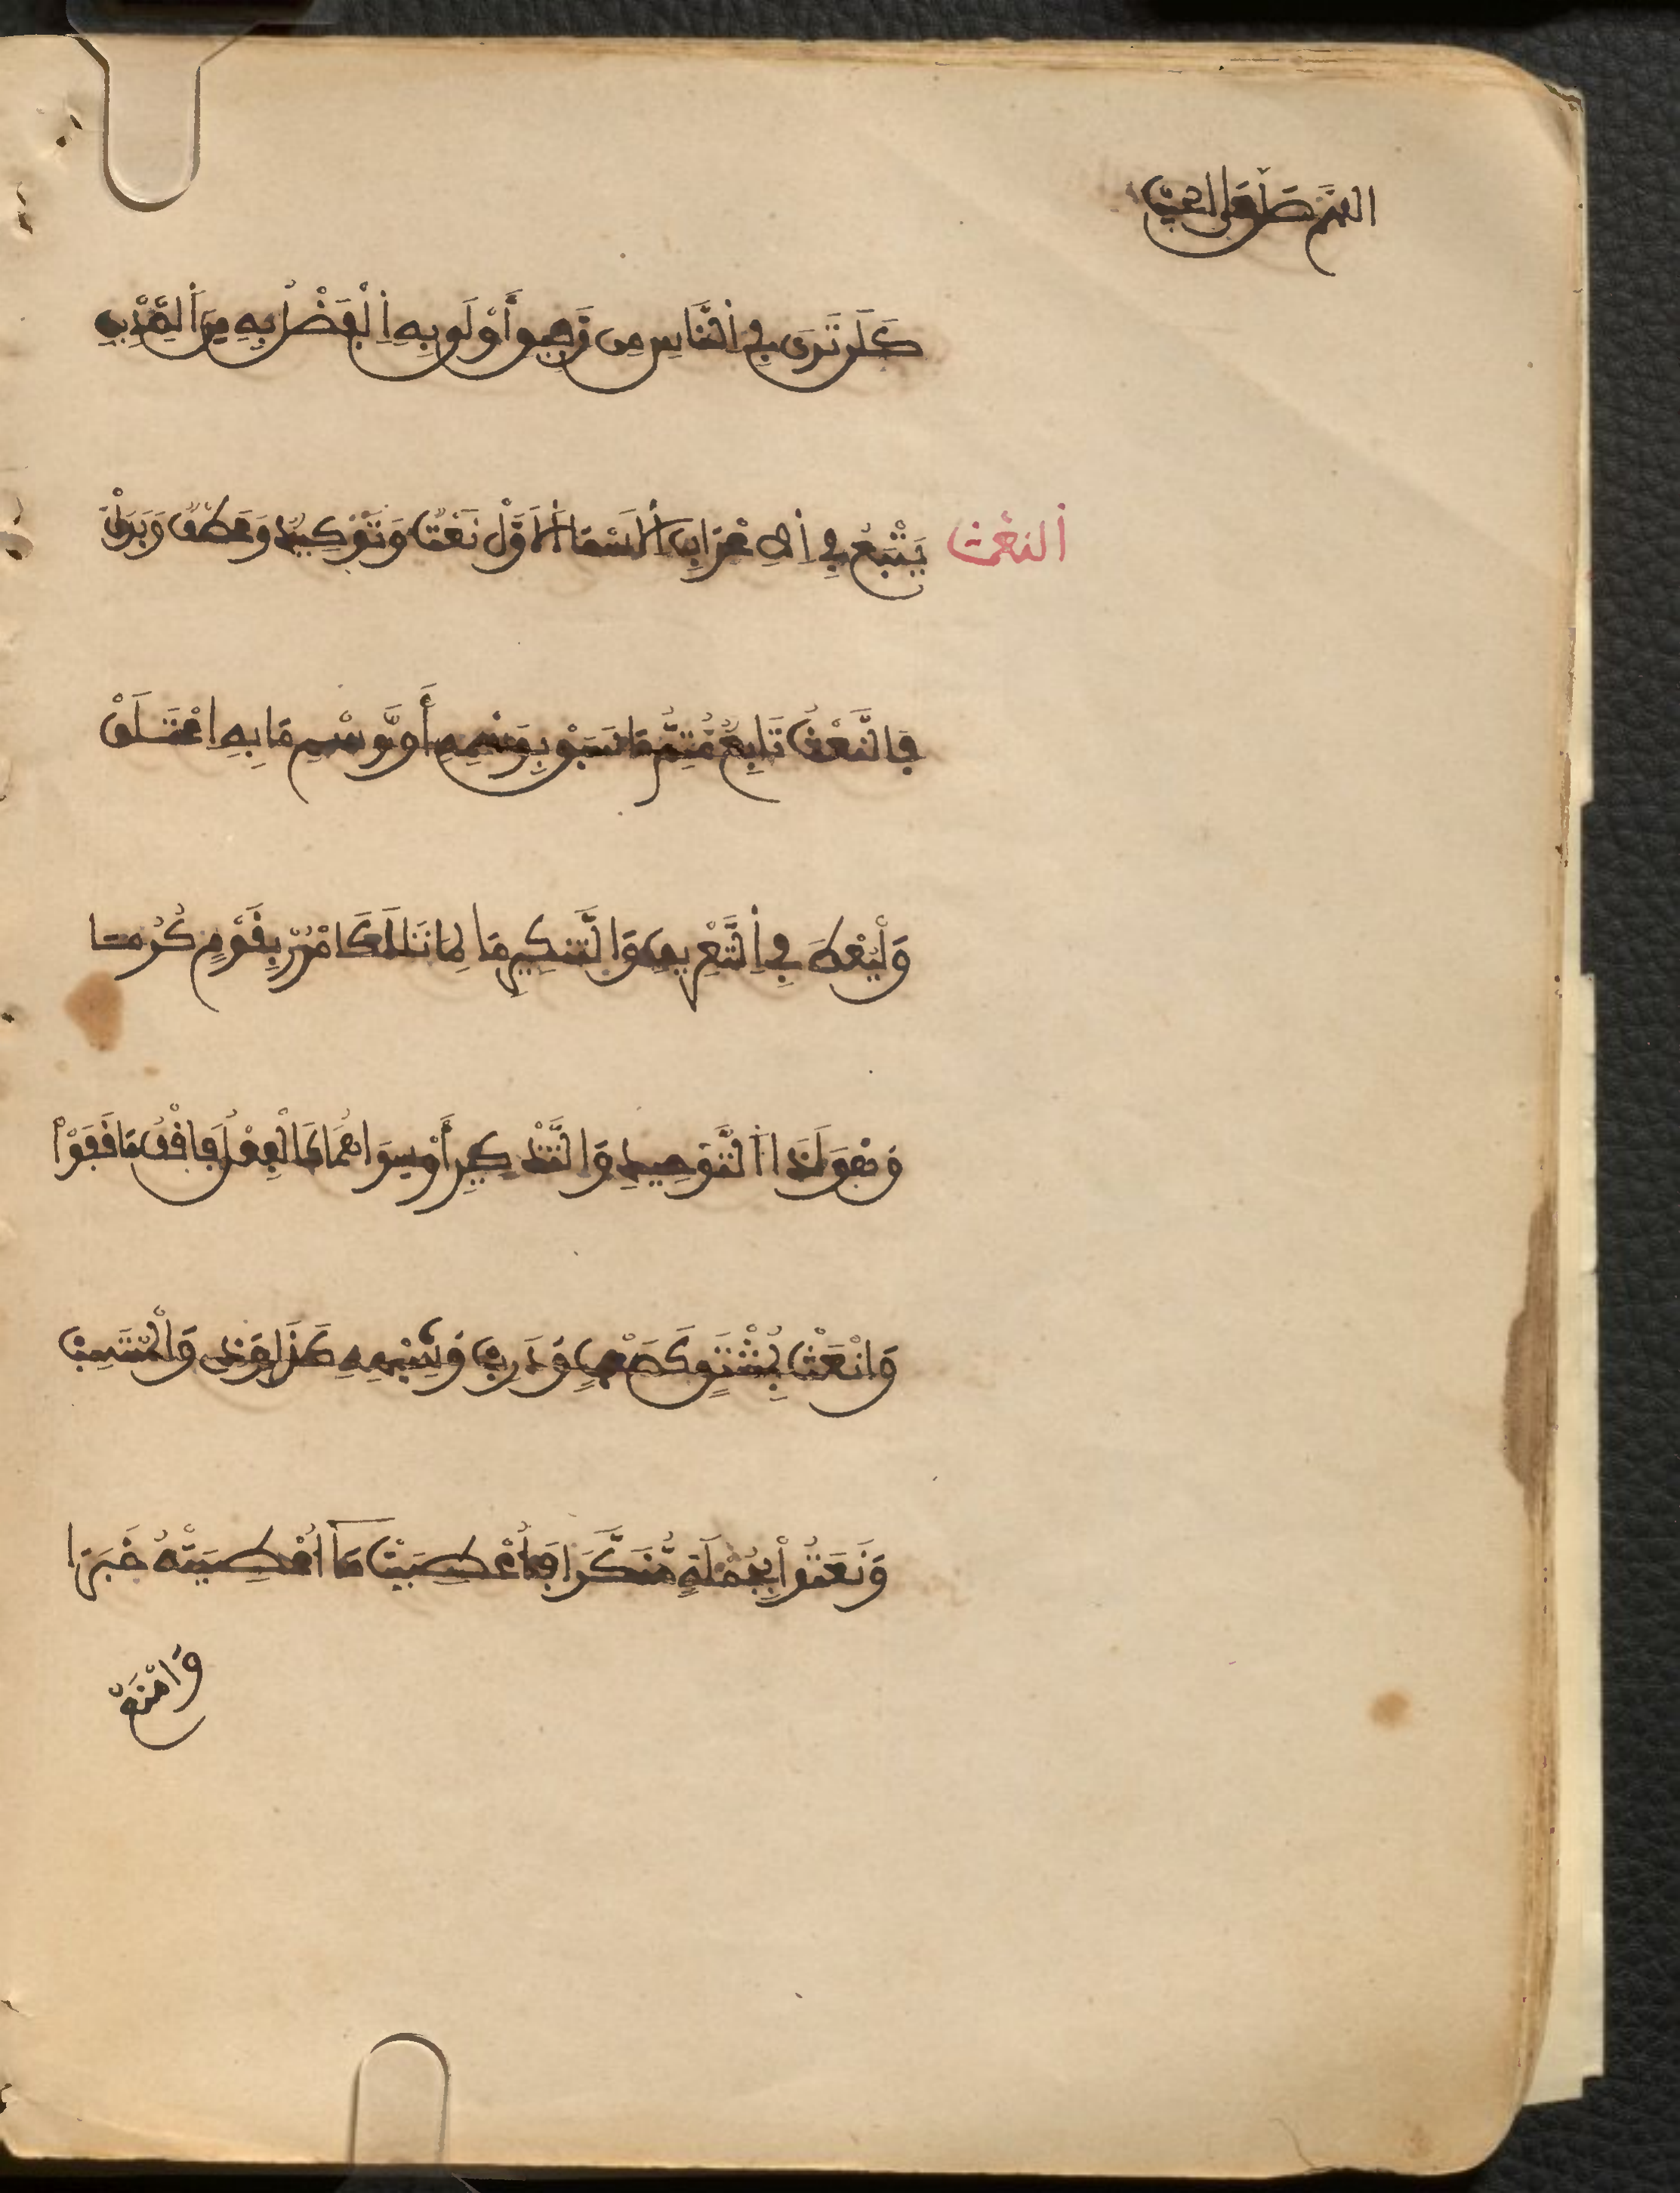 اللهم صل على الحبيب
كَلَن تَرَى فِي اَلنَّاسِ مِن رَّفِيقٍ أَوْلَى بِهِ اِلْفَضْلُ مِنَ اَلصِّدِّيقِ
اَلنعْت
يَتْبَعُ فِي اِلاِعْرَابِ اَلاَسْمَا اَلاَوَّلْ نَعْتٌ وَتَوْكِيدٌ وَعَطْفٌ وَبَدَلْ
فَالنَّعْتُ تَابِعٌ مُّتِمٌّ مَا سَبَقْ بِوَسْمِهِ أَوْ وَسْمِ مَا بِهِ اِعْتَلَقْ
وَلْيُعْطَ فِي اِلتَّعْرِيفِ وَالتَّنكِيرِ مَا لِمَا تَلَا كَامْرُرْ بِقَوْمٍ كُرَمَا
وَهْوَ لَدَا اَلتَّوْحِيدِ وَالتَّذْكِيرِ أَوْ سِوَاهُمَا كَالْفِعْلِ فَاقْفُ مَا قَفَوْاْ
وَانْعَتْ بِمُشْتَقٍّ كَصَعْبٍ وَذَرِبْ وَشِبْهِهِ كَذَا وَذِي وَالْمُنتَسِبْ
وَنَعَتُواْ بِجُمْلَةٍ مُّنَكَّرَا فَأُعْطِيَتْ مَا أُعْطِيَتْهُ خَبَرَا
وَامْنَعْ